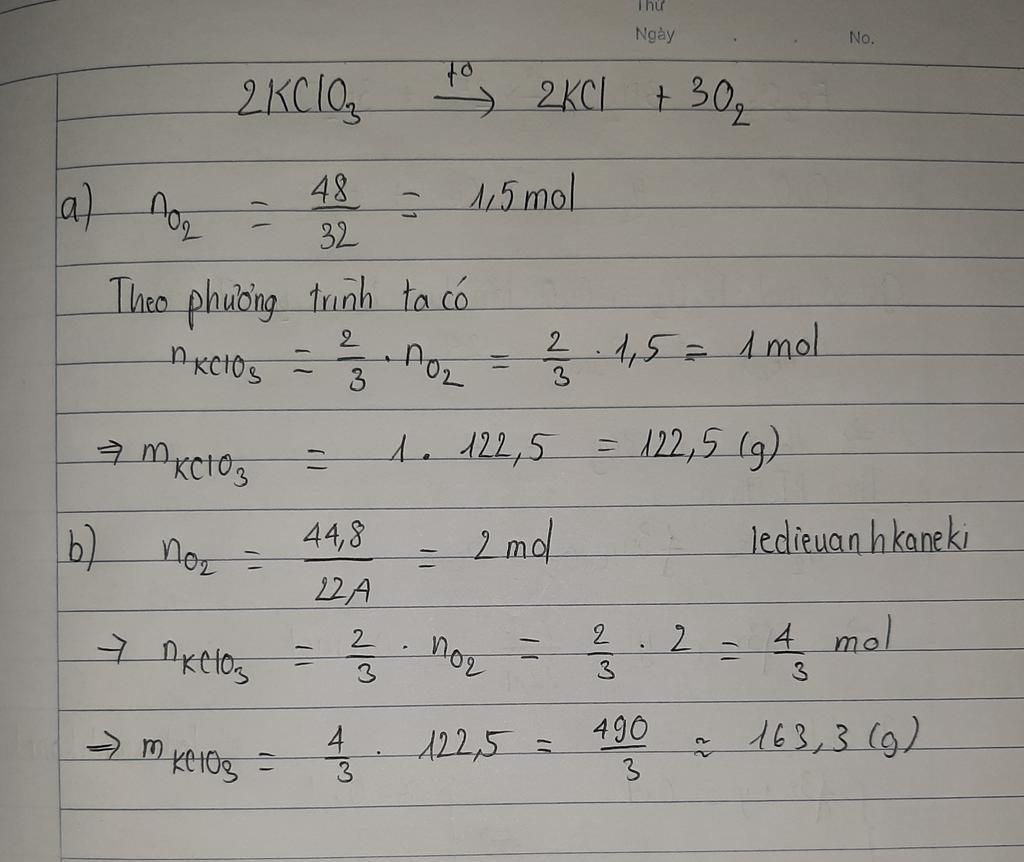 Thứ
Ngày . . No.
2KClO₃ —t⁰→ 2KCl + 3O₂
a) n_O₂ = 48/32 = 1,5 mol
Theo phương trình ta có
n_KClO₃ = 2/3 . n_O₂ = 2/3 . 1,5 = 1 mol
⇒ m_KClO₃ = 1 . 122,5 = 122,5 (g)
b) n_O₂ = 44,8/22,4 = 2 mol ledieuanhkaneki
→ n_KClO₃ = 2/3 . n_O₂ = 2/3 . 2 = 4/3 mol
⇒ m_KClO₃ = 4/3 . 122,5 = 490/3 ≈ 163,3 (g)